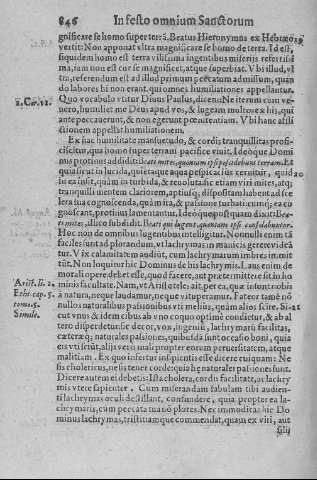 846 In festo omnium Sanctorum
gnificare se homo super terrã. Beatus Hieronymus ex Hebræo
vertit: Non apponat vltra magnificare se homo de terra. Id est,
siquidem homo est terra vilissima ingentibus miserijs refertissi
ma, tam non est cur se magnificet, atque superbiat. V bi illud, vl
tra, referendum est ad illud primum peccatum admissum, quan
do labores hi non erant, qui omnes humiliationes appellantur.
2. Cor. 12. Quo vocabulo vtitur Diuus Paulus, dicens: Ne iterum cum ve-
nero, humiliet me Deus apud vos, & lugeam multos ex his, qui
ante peccauerunt, & non egerunt pœnitentiam. V bi hanc affli
ctionem appellat humiliationem.
Ex hac humilitate mansuetudo, & cordis tranquillitas profi-
ciscitur, qua homo super terram pacifice viuit. Ideoque Domi
nus protinus addidit: Beati mites, quoniam ipsi possidebunt terram. Et
qualis est in lucida, quietaque aqua perspicacius cernitur, quid
ea in sit, quàm in turbida, & reuolutas; etiam viri mites, atq;
tranquilli mentem clariorem, aptiusq; dispositam habent ad sce
lera sua cognoscenda, quàm ira, & passione turbati: cumq; ea co
gnoscant, protinus lamentantur. Ideoque postquam dixit: Bea-
ti mites, illico subdidit: Beati qui lugent, quoniam ipsi consolabuntur.
Hoc non de omnibus lugentibus intelligendum. Non enim tã
faciles sunt ad plorandum, vt lachrymas in manicis gerere videã
tur. V ix calamitatem audiüt, cum lachrymarum imbres immit
tüt. Non loquitur hic Dominus de his lachrymis. Laus enim de
morali opere debet esse, quod facere, aut prætermittere sit in ho
Arist. li. 2. minis facultate. Nam, vt Aristoteles: ait, per ea, quæ insunt nobis
Ethi. cap. 5. à natura, neque laudamur, neque vituperamur. Fateor tamẽ nõ
tomo. 5. nullos naturalibus passionibus vti melius, quàm alios scire. Si-
Simile. cut vnus & idem cibus ab vno coquo optimè conditur, & ab al
tero disperdetur: sic decor, vox, ingeniũ, lachrymarũ facilitas,
cæteraq; naturales passiones, quibusdã sunt occasio boni, quia
eis vti sciũt, alijs verò mali propter eorum peruersitatem, atque
malitiam. Ex quo infertur insipientis esse dicere cuiquam: Ne
sis cholericus, nelis tener corde: quia hæ naturales passiones sunt.
Dicere autem ei debetis: Ista cholera, cordis facilitate, ac lachry
mis vtere sapienter. Cum miserandam fabulam tibi audien-
ti lachrymas oculi destillant, confundere, quia propter ea la-
chrymaris, cum peccata tua nõ plores. Nec immodicas hic Do
minus lachrymas, tristitiamque commendat, quam ex viri, aut
filij